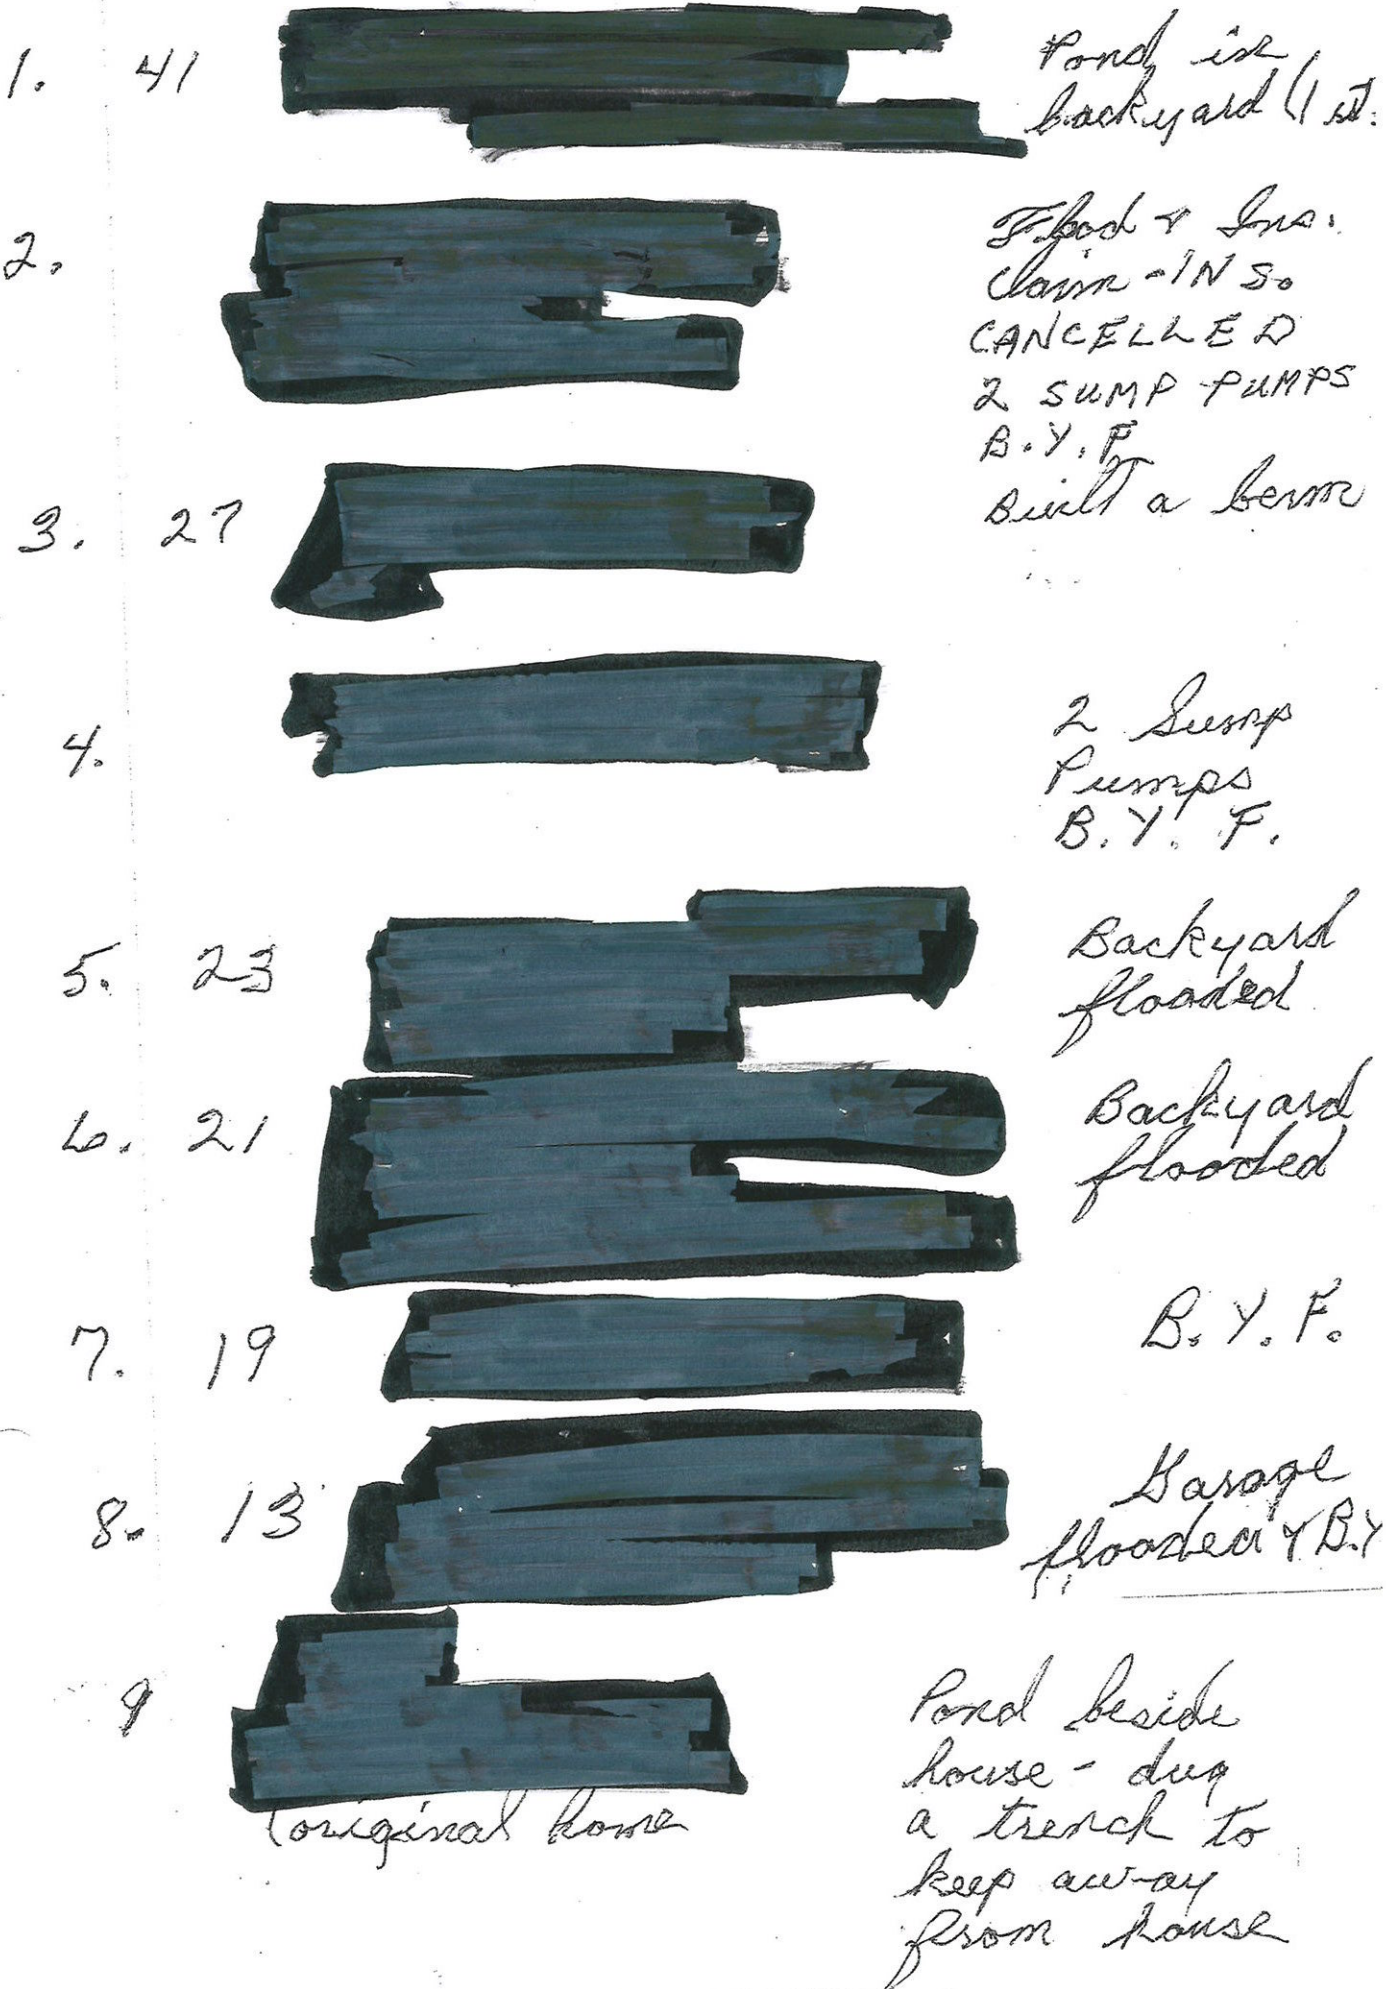 1. 41 Pond in
backyard (1 st.
2. Flood & Ins.
Claim - INS.
CANCELLED
2 SUMP PUMPS
B.Y.F
Built a berm
3. 27
4. 2 Sump
Pumps
B.Y. F.
5. 23 Backyard
flooded
6. 21 Backyard
flooded
7. 19 B. Y. F.
8. 13 Garage
flooded & B.Y
9 Pond beside
house - dug
a trench to
(original home
keep away
from house